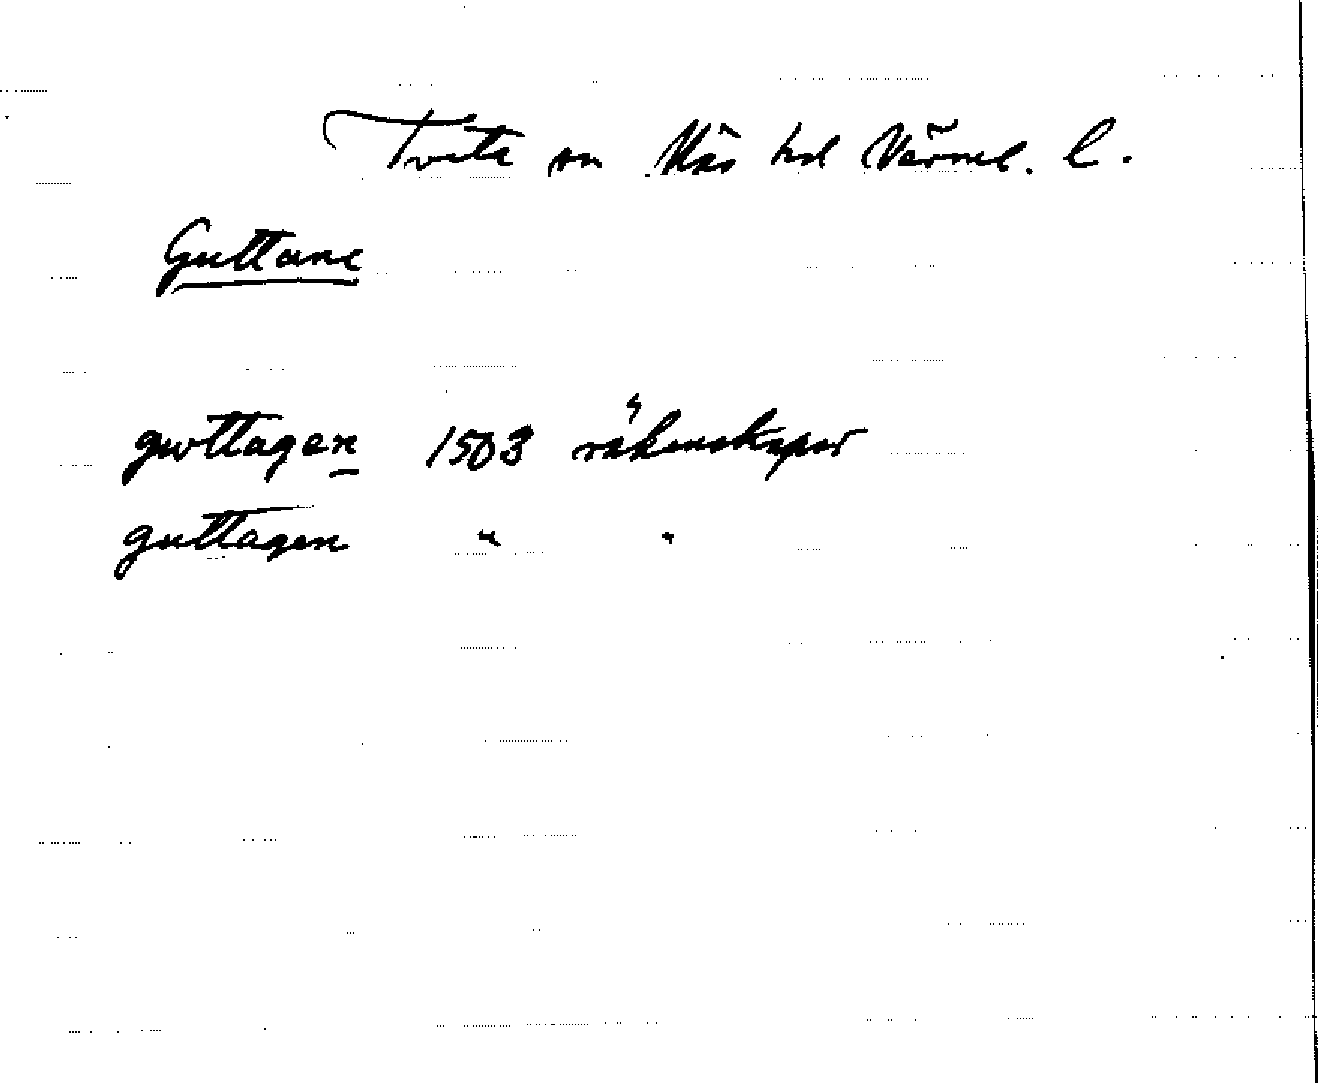 Tveta sn Näs hd Värml. l.
Guttane
gwttagen 1503 räkenskaper
guttagen " "